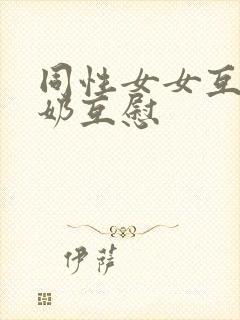 同性女女互
奶互慰
伊萨